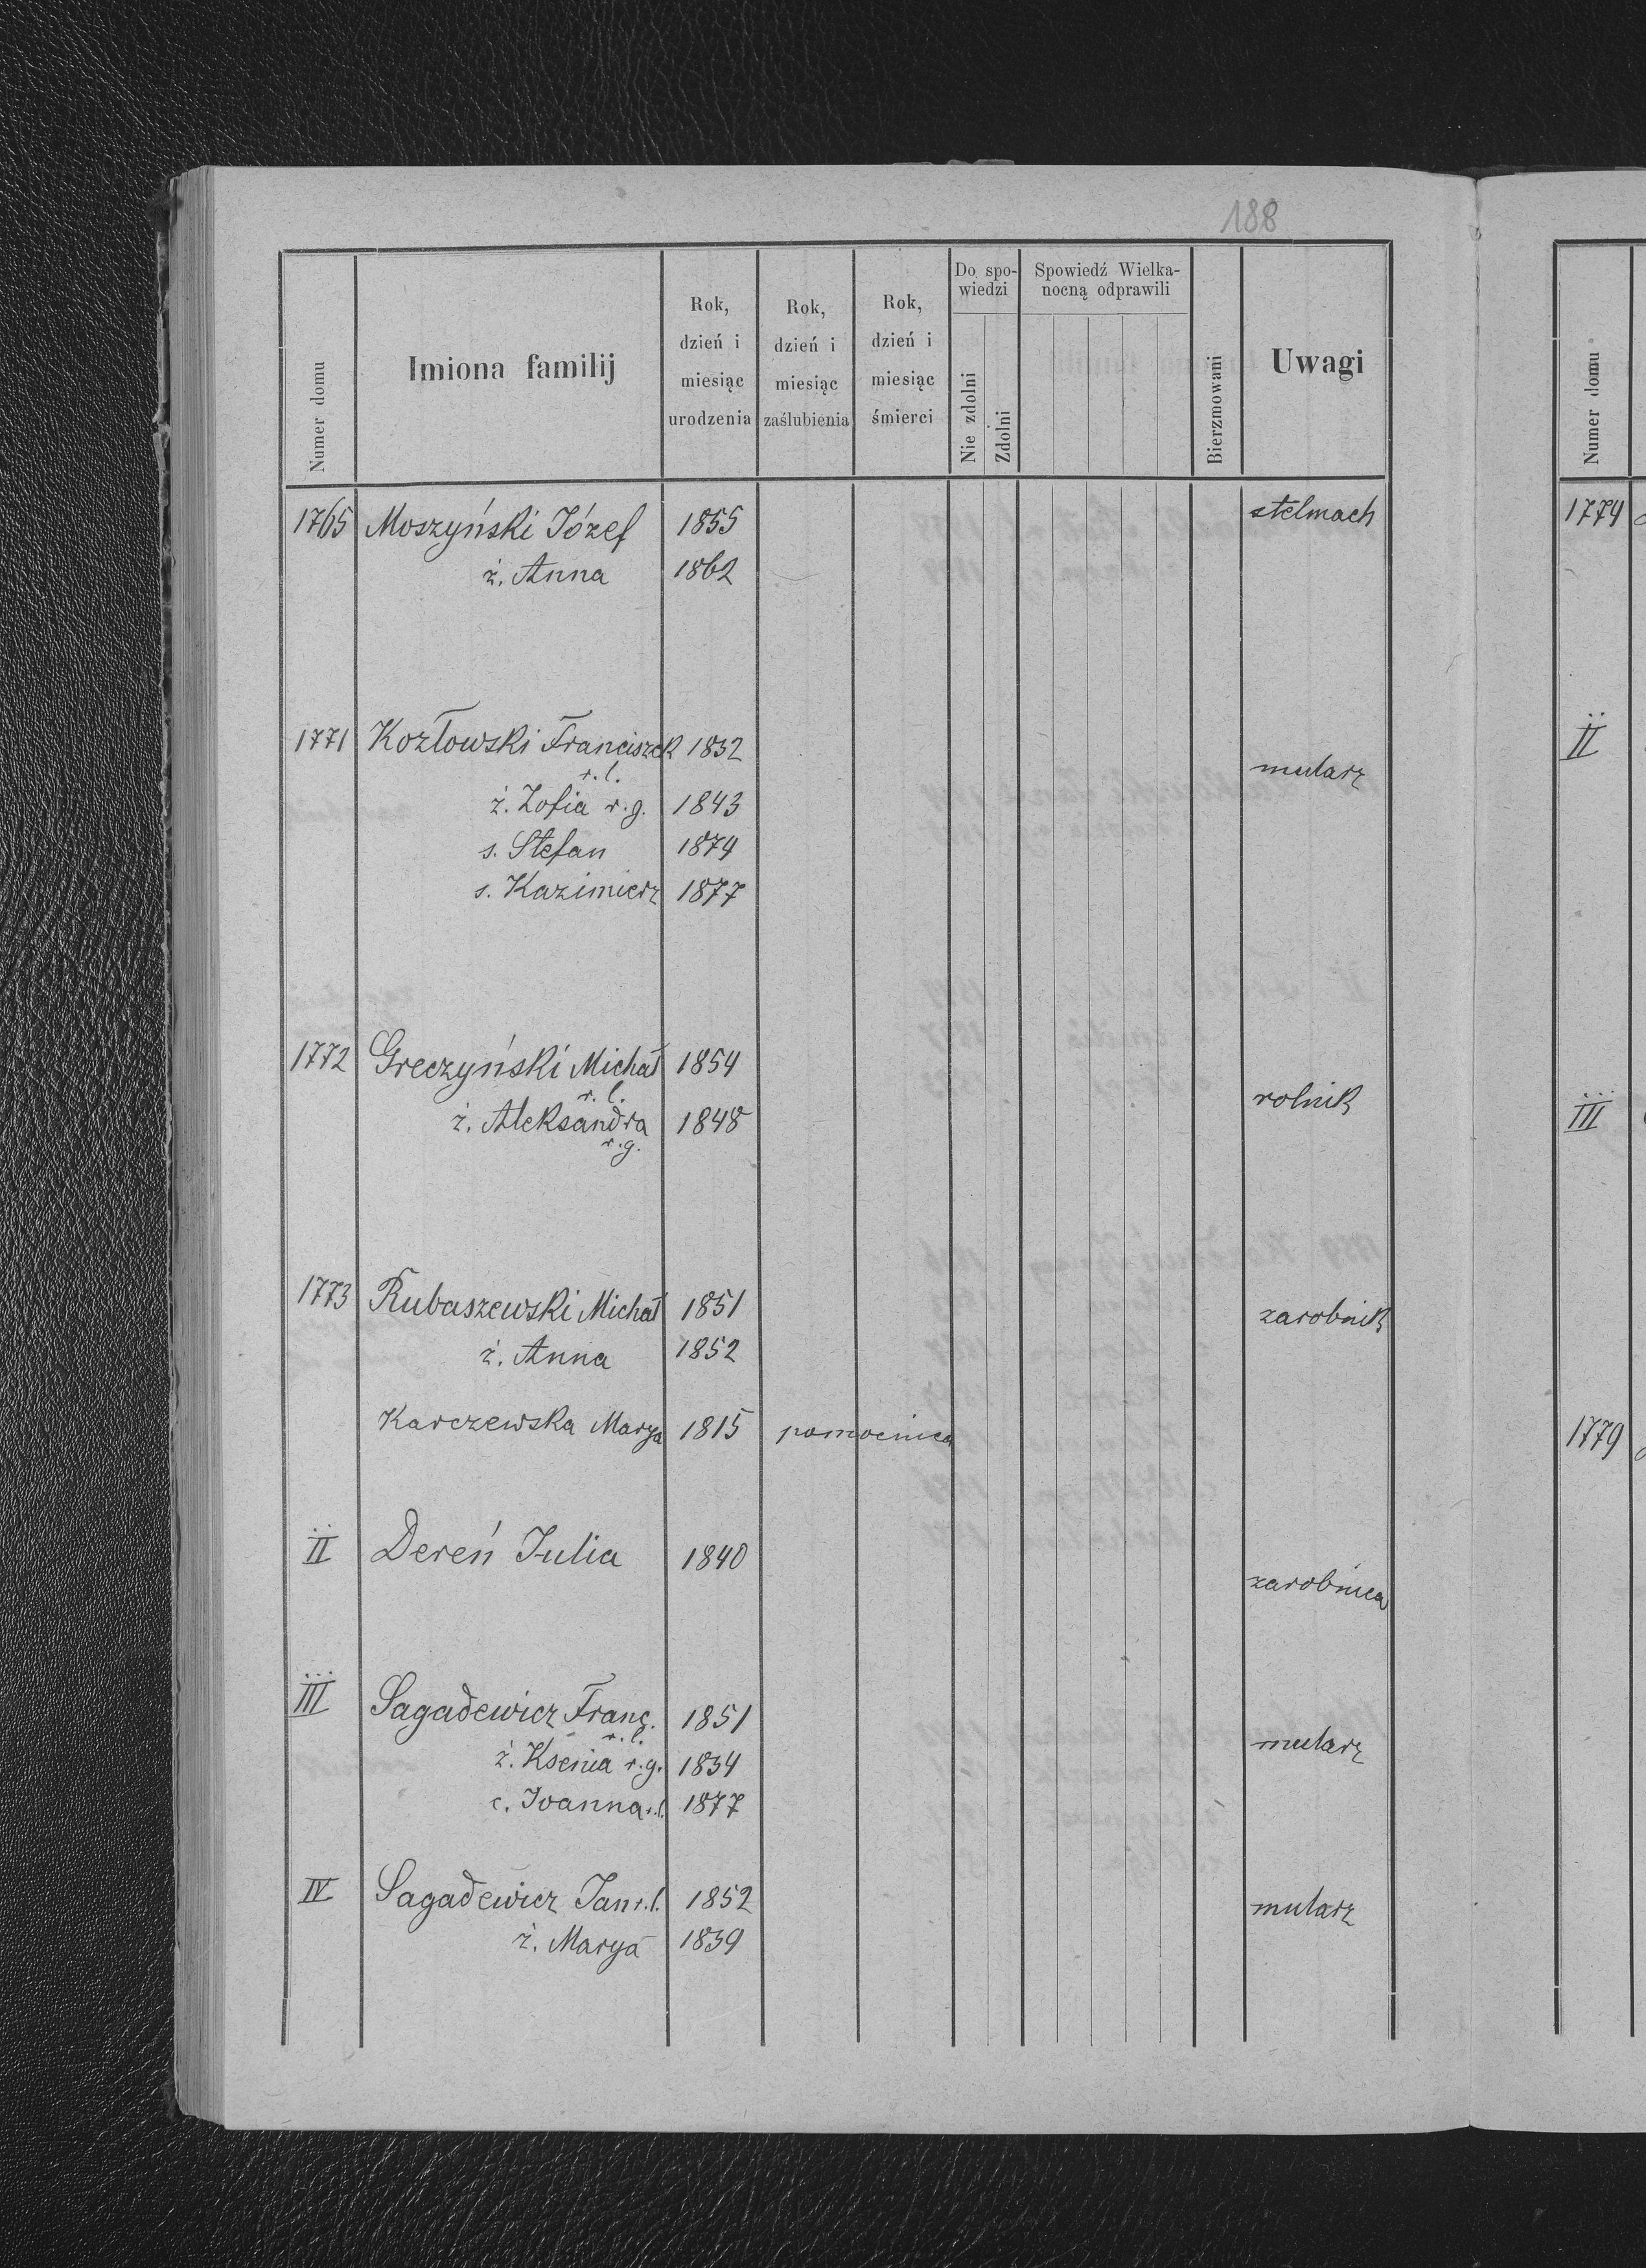 188
Numer domu
Imiona familij
Rok, dzień i miesiąc urodzenia
Rok, dzień i miesiąc zaślubienia
Rok, dzień i miesiąc śmierci
Do spo-
wiedzi
Nie zdolni
Zdolni
Spowiedź Wielka-
nocną odprawili
Bierzmowani
Uwagi
Numer domu
1765 Moszyński Józef 1855 stelmach
ż. Anna 1862
1771 Kozłowski Franciszek 1832
r. l. mularz
ż. Zofia r. g. 1843
s. Stefan 1874
s. Kazimierz 1877
1772 Greczyński Michał 1854
r. l. rolnik
ż. Aleksandra 1848
r. g.
1773 Rubaszewski Michał 1851 zarobnik
ż. Anna 1852
Karczewska Marya 1815 pomocnica
II Dereń Julia 1840
zarobnica
III Sagadewicz Franc. 1851
r. l. mularz
ż. Ksenia r. g. 1834
c. Joanna r. l. 1877
IV Sagadewicz Jan r. l. 1852 mularz
ż. Marya 1839
1774
II
III
1779